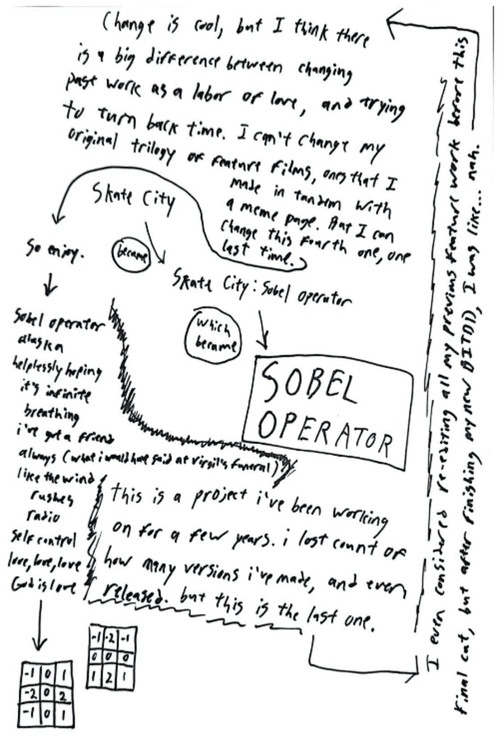 Change is cool, but I think there
is a big difference between changing
past work as a labor of love, and trying
to turn back time. I can't change my
original trilogy of feature films, ones that I
made in tandem with
a meme page. But I can
change this fourth one, one
last time.
So enjoy.
Skate City
became
Skate City: Sobel operator
which
became
SOBEL
OPERATOR
Sobel operator
alaska
helplessly hoping
it's infinite
breathing
i've got a friend
always (what i would have said at virgil's funeral)
like the wind
rushes
radio
self control
love, love, love
God is love
-1 0 1
-2 0 2
-1 0 1
-1 -2 -1
0 0 0
1 2 1
This is a project i've been working
on for a few years. i lost count of
how many versions i've made, and even
released. but this is the last one.
I even considered re-editing all my previous feature work before this
final cut, but after finishing my new BITOID, I was like... nah.